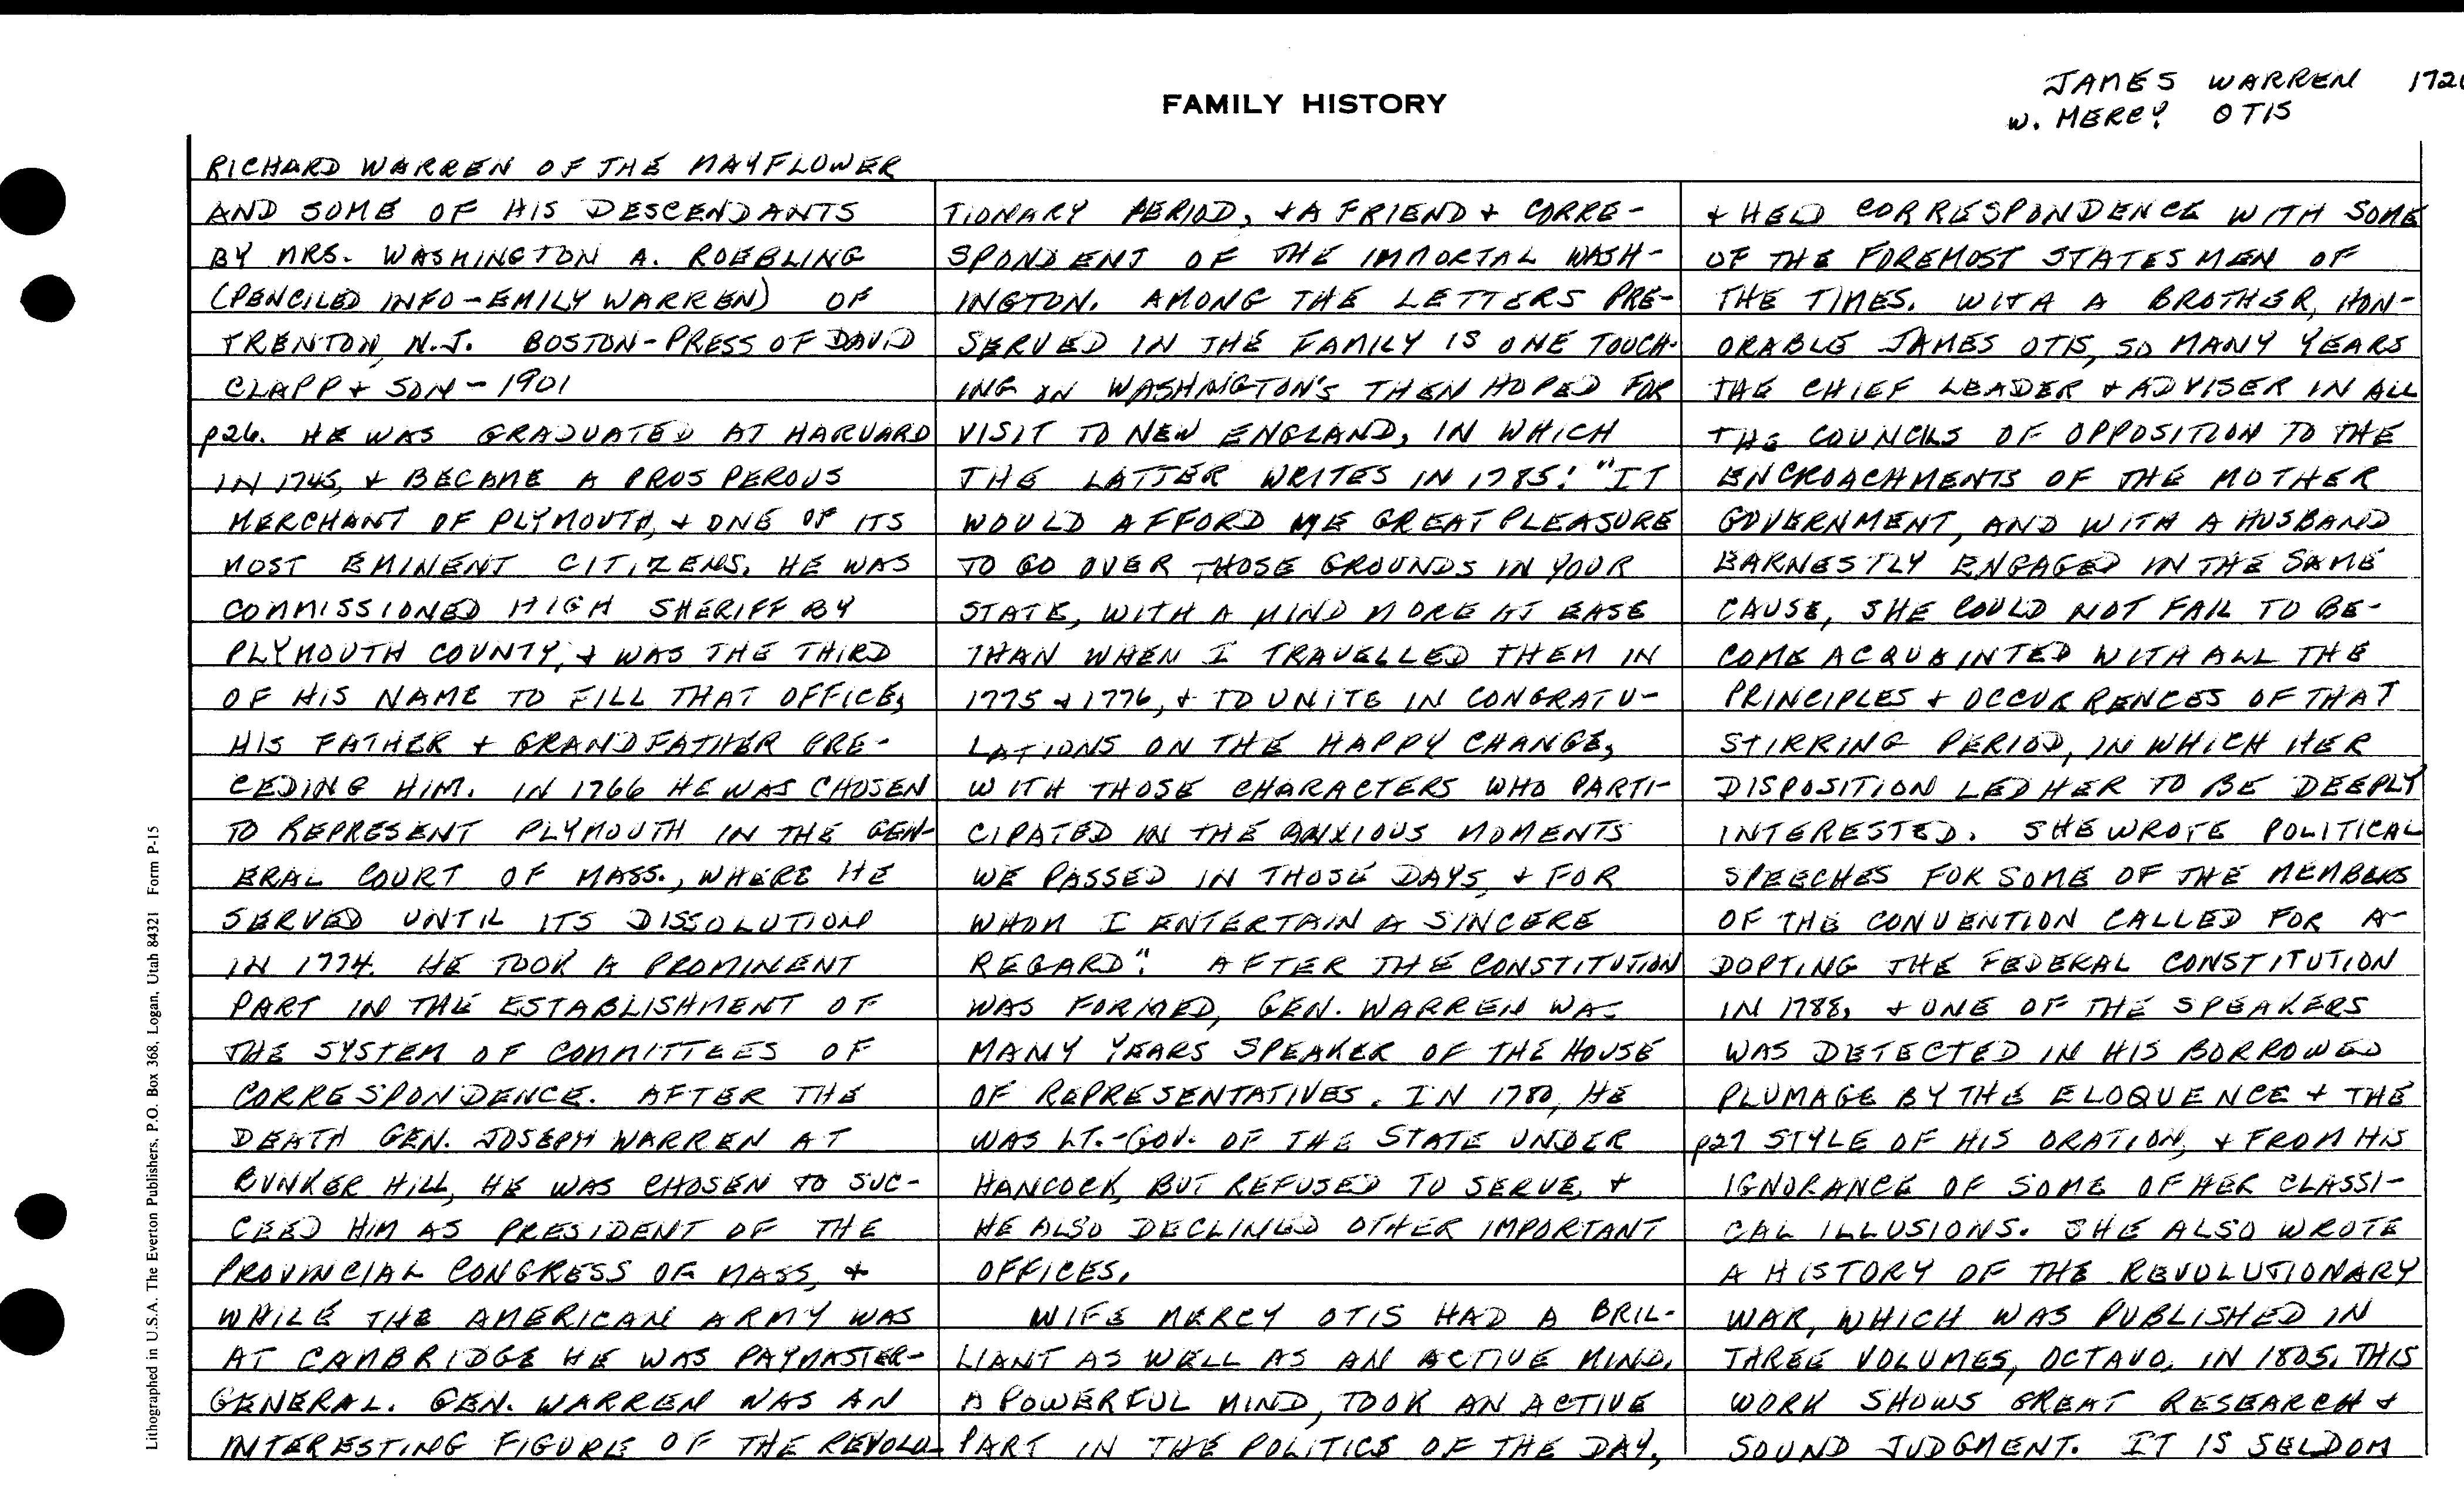 FAMILY HISTORY
JAMES WARREN 172
W. MERCY OTIS
RICHARD WARREN OF THE MAYFLOWER
AND SOME OF HIS DESCENDANTS
BY MRS. WASHINGTON A. ROEBLING
(PENCILED INFO-EMILY WARREN) OF
TRENTON, N.J. BOSTON-PRESS OF DAVID
CLAPP & SON - 1901
p26. HE WAS GRADUATED AT HARVARD
IN 1745, & BECAME A PROSPEROUS
MERCHANT OF PLYMOUTH, & ONE OF ITS
MOST EMINENT CITIZENS. HE WAS
COMMISSIONED HIGH SHERIFF BY
PLYMOUTH COUNTY, & WAS THE THIRD
OF HIS NAME TO FILL THAT OFFICE,
HIS FATHER & GRANDFATHER PRE-
CEDING HIM. IN 1766 HE WAS CHOSEN
TO REPRESENT PLYMOUTH IN THE GEN-
ERAL COURT OF MASS., WHERE HE
SERVED UNTIL ITS DISSOLUTION
IN 1774. HE TOOK A PROMINENT
PART IN THE ESTABLISHMENT OF
THE SYSTEM OF COMMITTEES OF
CORRESPONDENCE. AFTER THE
DEATH GEN. JOSEPH WARREN AT
BUNKER HILL, HE WAS CHOSEN TO SUC-
CEED HIM AS PRESIDENT OF THE
PROVINCIAL CONGRESS OF MASS, &
WHILE THE AMERICAN ARMY WAS
AT CAMBRIDGE HE WAS PAYMASTER-
GENERAL. GEN. WARREN WAS AN
INTERESTING FIGURE OF THE REVOLU-
TIONARY PERIOD, & A FRIEND & CORRE-
SPONDENT OF THE IMMORTAL WASH-
INGTON. AMONG THE LETTERS PRE-
SERVED IN THE FAMILY IS ONE TOUCH-
ING ON WASHINGTON'S THEN HOPED FOR
VISIT TO NEW ENGLAND, IN WHICH
THE LATTER WRITES IN 1785: "IT
WOULD AFFORD ME GREAT PLEASURE
TO GO OVER THOSE GROUNDS IN YOUR
STATE, WITH A MIND MORE AT EASE
THAN WHEN I TRAVELLED THEM IN
1775 & 1776, & TO UNITE IN CONGRATU-
LATIONS ON THE HAPPY CHANGE,
WITH THOSE CHARACTERS WHO PARTI-
CIPATED IN THE ANXIOUS MOMENTS
WE PASSED IN THOSE DAYS, & FOR
WHOM I ENTERTAIN A SINCERE
REGARD". AFTER THE CONSTITUTION
WAS FORMED, GEN. WARREN WAS
MANY YEARS SPEAKER OF THE HOUSE
OF REPRESENTATIVES. IN 1780, HE
WAS LT.-GOV. OF THE STATE UNDER
HANCOCK, BUT REFUSED TO SERVE, &
HE ALSO DECLINED OTHER IMPORTANT
OFFICES.
WIFE MERCY OTIS HAD A BRIL-
LIANT AS WELL AS AN ACTIVE MIND.
A POWERFUL MIND, TOOK AN ACTIVE
PART IN THE POLITICS OF THE DAY,
& HELD CORRESPONDENCE WITH SOME
OF THE FOREMOST STATESMEN OF
THE TIMES. WITH A BROTHER, HON-
ORABLE JAMES OTIS, SO MANY YEARS
THE CHIEF LEADER & ADVISER IN ALL
THE COUNCILS OF OPPOSITION TO THE
ENCROACHMENTS OF THE MOTHER
GOVERNMENT, AND WITH A HUSBAND
EARNESTLY ENGAGED IN THE SAME
CAUSE, SHE COULD NOT FAIL TO BE-
COME ACQUAINTED WITH ALL THE
PRINCIPLES & OCCURRENCES OF THAT
STIRRING PERIOD, IN WHICH HER
DISPOSITION LED HER TO BE DEEPLY
INTERESTED. SHE WROTE POLITICAL
SPEECHES FOR SOME OF THE MEMBERS
OF THE CONVENTION CALLED FOR A-
DOPTING THE FEDERAL CONSTITUTION
IN 1788, & ONE OF THE SPEAKERS
WAS DETECTED IN HIS BORROWED
PLUMAGE BY THE ELOQUENCE & THE
p27 STYLE OF HIS ORATION, & FROM HIS
IGNORANCE OF SOME OF HER CLASSI-
CAL ILLUSIONS. SHE ALSO WROTE
A HISTORY OF THE REVOLUTIONARY
WAR, WHICH WAS PUBLISHED IN
THREE VOLUMES, OCTAVO, IN 1805. THIS
WORK SHOWS GREAT RESEARCH &
SOUND JUDGMENT. IT IS SELDOM
Lithographed in U.S.A. The Everton Publishers, P.O. Box 368, Logan, Utah 84321 Form P-15